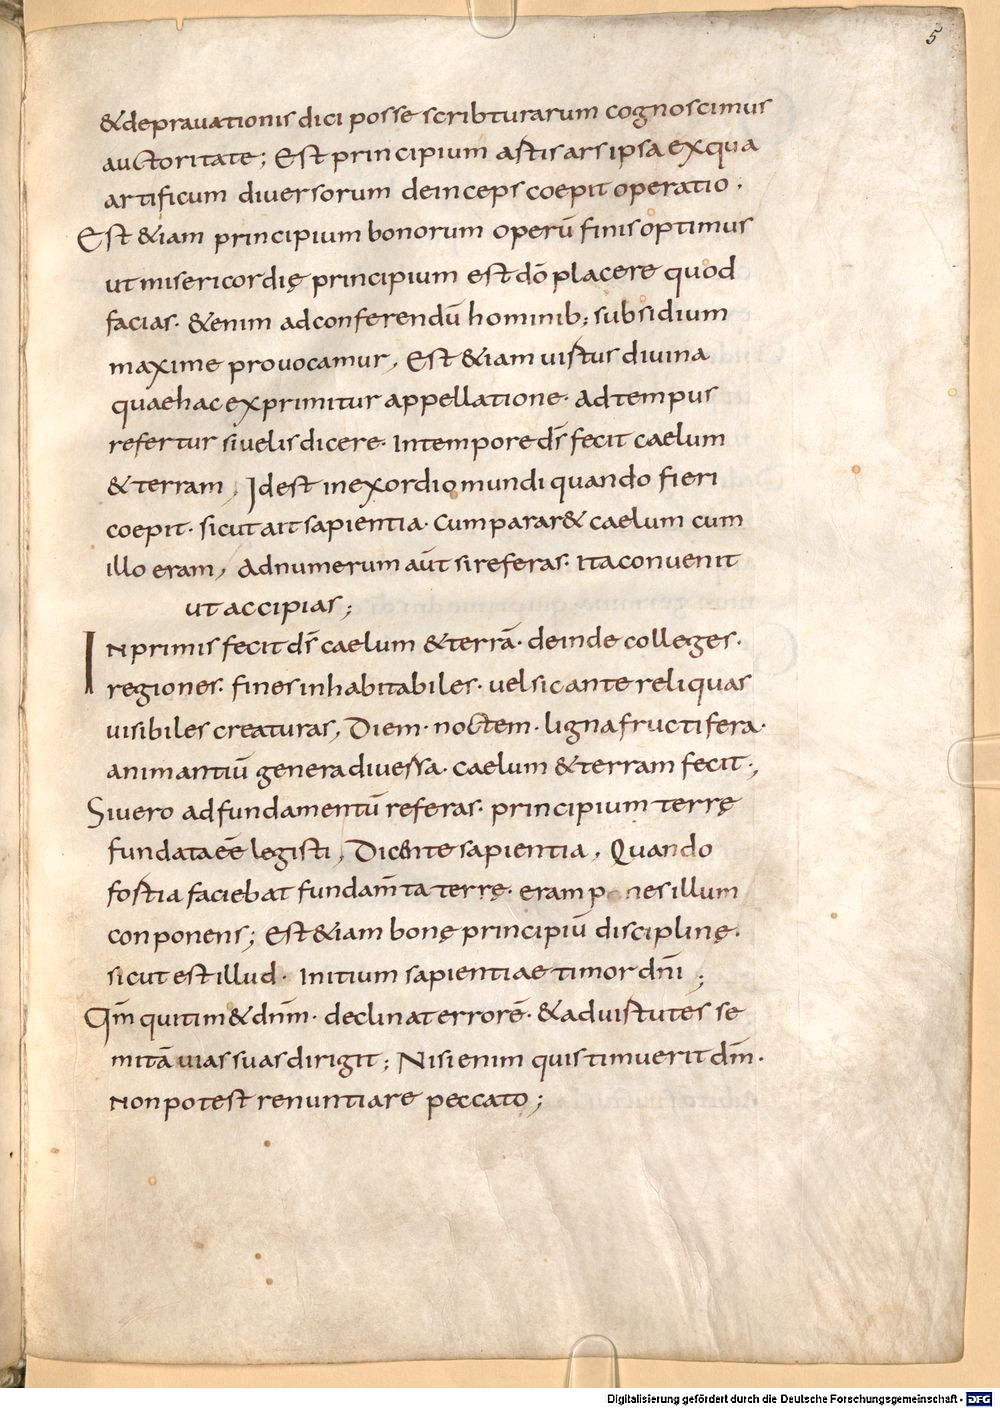 5
& depravationis dici posse scribturarum cognoscimus
auctoritate; Est principium artis ars ipsa ex qua
artificum diversorum deinceps coepit operatio.
Est &iam principium bonorum operū finis optimus
ut misericordię principium est dō placere quod
facias. &enim ad conferendū hominib; subsidium
maxime provocamur, Est &iam uirtus divina
quae hac exprimitur appellatione. Ad tempus
refertur si uelis dicere. In tempore d̄s fecit caelum
& terram, Id est in exordio mundi quando fieri
coepit. sicut ait sapientia. Cum parar& caelum cum
illo eram, Ad numerum aūt si referas. ita convenit
ut accipias;
In primis fecit d̄s caelum & terrā. deinde colleges.
regiones. fines inhabitabiles. uel sic ante reliquas
uisibiles creaturas, Diem. noctem. ligna fructifera.
animantiū genera diuersa. caelum & terram fecit.,
Si uero ad fundamentū referas. principium terrę
fundata eē legisti, Dicente sapientia, Quando
fortia faciebat fundam̄ta terrę. eram penes illum
conponens; Est &iam bonę principiū disciplinę.
sicut est illud. Initium sapientiae timor dn̄i;
Qm̄ qui tim& dn̄m. declinat errorē. & ad uirtutes se
mitā uias suas dirigit; Nisi enim quis timuerit dm̄.
non potest renuntiare peccato;
Digitalisierung gefördert durch die Deutsche Forschungsgemeinschaft - DFG